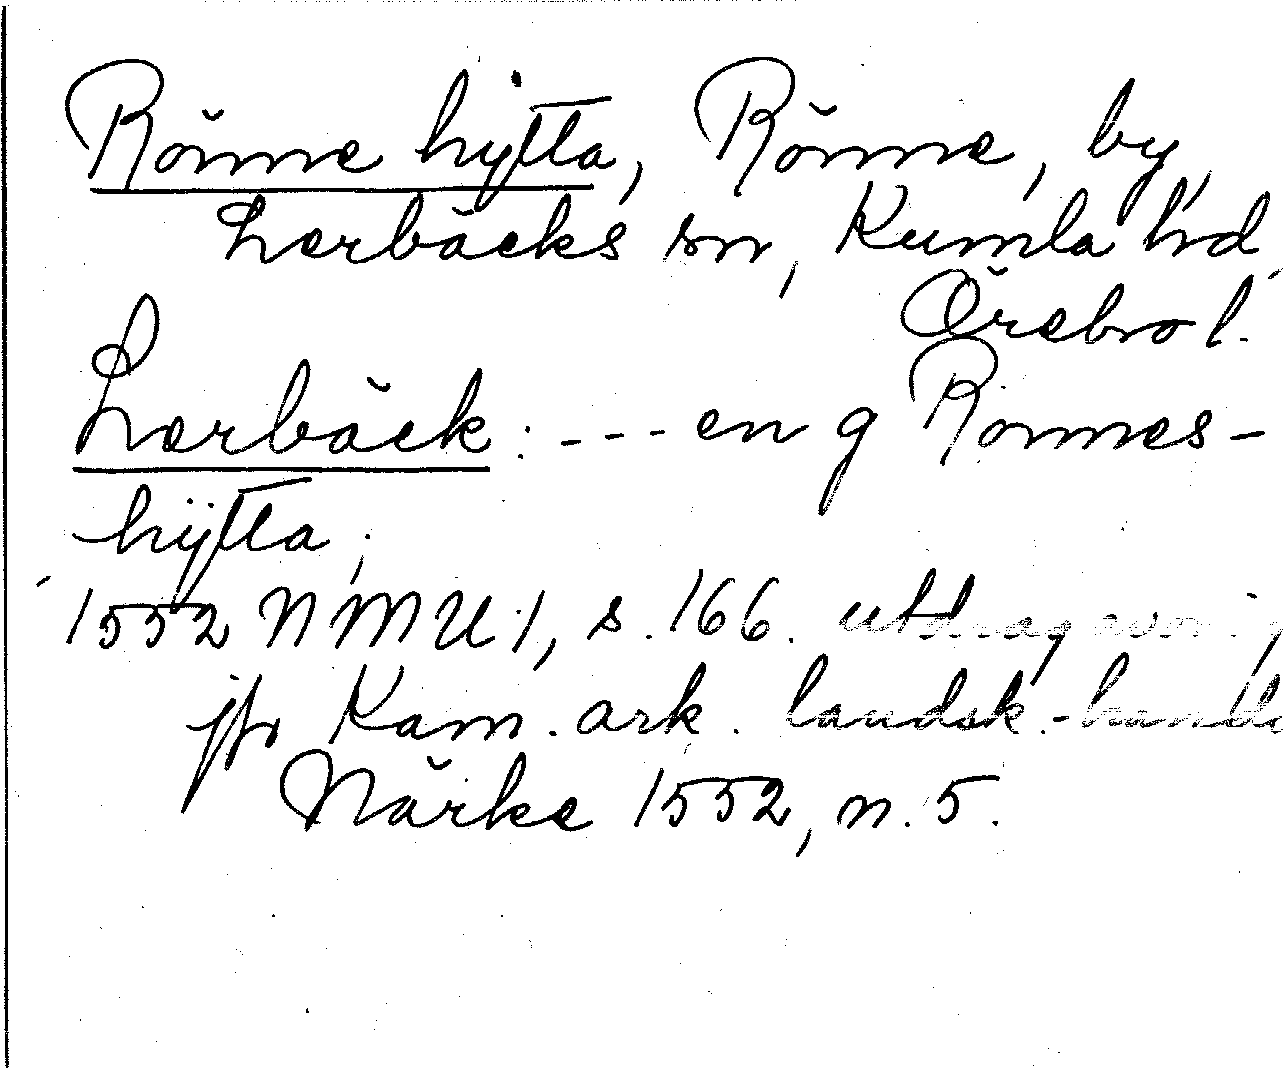 Rönne hytta, Rönne, by,
Lerbäcks sn, Kumla hd,
Örebro l.
Lerbäck: --- en g Ronnes-
hÿtta;
1552 NMU 1, s. 166. utdrag avor. i,
jfr Kam. ark. landsk.-handl
Närke 1552, n. 5.